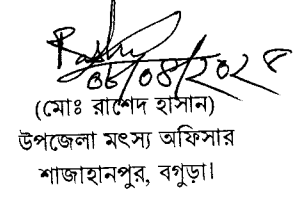 ০৮/০৪/২০২৪
(মোঃ রাশেদ হাসান)
উপজেলা মৎস্য অফিসার
শাজাহানপুর, বগুড়া।